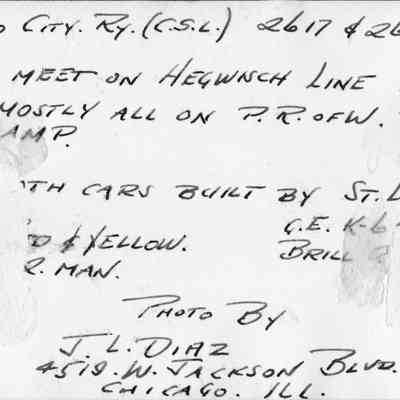 O CITY. RY. (C.S.L.) 2617 & 26
MEET ON HEGWISCH LINE
MOSTLY ALL ON P.R. OF W.
AMP.
TH CARS BUILT BY ST. L
G.E. K-6
D & YELLOW.
BRILL
2. MAN.
PHOTO BY
J. L. DIAZ
4519. W. JACKSON BLVD.
CHICAGO. ILL.